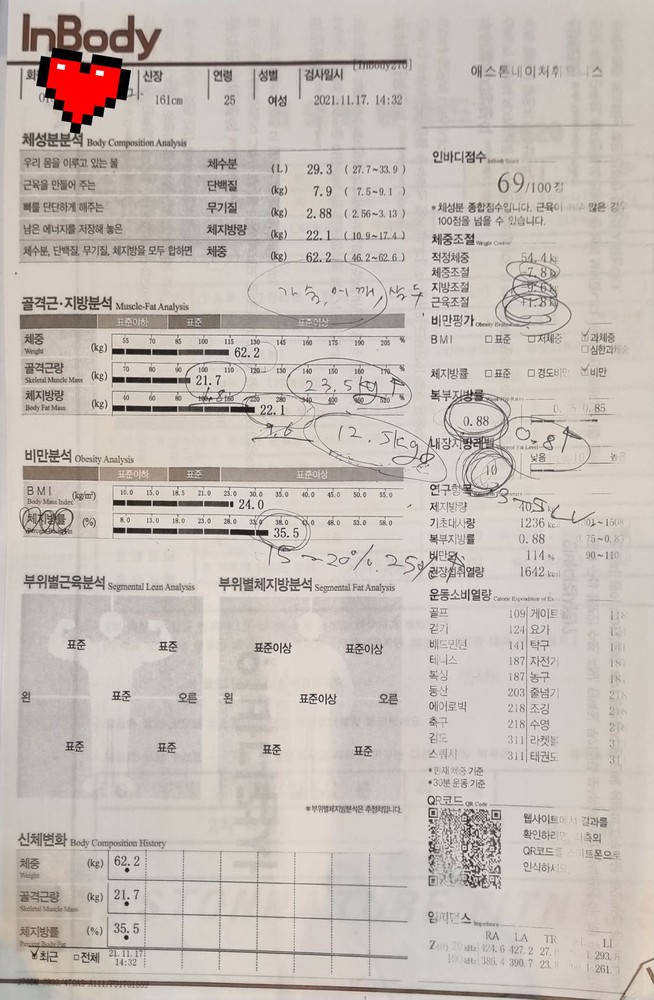 InBody
[InBody270]
신장 연령 성별 검사일시
161cm 25 여성 2021.11.17. 14:32
체성분분석 Body Composition Analysis
우리 몸을 이루고 있는 물 체수분 (L) 29.3 ( 27.7~33.9 )
근육을 만들어 주는 단백질 (kg) 7.9 ( 7.5~9.1 )
뼈를 단단하게 해주는 무기질 (kg) 2.88 ( 2.56~3.13 )
남은 에너지를 저장해 놓은 체지방량 (kg) 22.1 ( 10.9~17.4 )
체수분, 단백질, 무기질, 체지방을 모두 합하면 체중 (kg) 62.2 ( 46.2~62.6 )
가슴, 어깨,
골격근·지방분석 Muscle-Fat Analysis
표준이하 표준 표준이상
체중 (kg) 55 70 85 100 115 130 145 160 175 190 205 %
Weight 62.2
골격근량 (kg) 70 80 90 100 110 120 130 140 150 160 170 %
Skeletal Muscle Mass 21.7
23.5kg ↑
체지방량 (kg) 40 60 80 100 160 220 280 340 400 460 510 %
Body Fat Mass 22.1
9.6
12.5kg
비만분석 Obesity Analysis
표준이하 표준 표준이상
BMI (kg/m²) 10.0 15.0 18.5 21.0 25.0 30.0 35.0 40.0 45.0 50.0 55.0
Body Mass Index 24.0
체지방률 (%) 8.0 13.0 18.0 23.0 28.0 33.0 38.0 43.0 48.0 53.0 58.0
35.5
15~20%. 25%
부위별근육분석 Segmental Lean Analysis
표준 표준
왼 표준 오른
표준 표준
부위별체지방분석 Segmental Fat Analysis
표준이상 표준이상
왼 표준이상 오른
표준 표준
* 부위별체지방분석은 추정치입니다.
신체변화 Body Composition History
체중 (kg) 62.2
Weight
골격근량 (kg) 21.7
Skeletal Muscle Mass
체지방률 (%) 35.5
Percent Body Fat
최근 □전체 21.11.17
14:32
인바디점수 InBody Score
69/100 점
* 체성분 종합점수입니다. 근육이 많은 경우
100점을 넘을 수 있습니다.
체중조절 Weight Control
적정체중 54.4 kg
체중조절 -7.8 kg
지방조절 -9.6 kg
근육조절 +1.8 kg
비만평가 Obesity Evaluation
BMI □표준 □저체중 ☑과체중
□심한과체중
체지방률 □표준 □경도비만 ☑비만
복부지방률
0.88 0.85
0.8↑
내장지방레벨
10 낮음 높음
연구항목
제지방량
기초대사량 1236 kcal
복부지방률 0.88
비만도 114 % 90~110
권장섭취열량 1642 kcal
운동소비열량
골프 109 게이트
걷기 124 요가
배드민턴 141 탁구
테니스 187 자전거
복싱 187 농구
등산 203 줄넘기
에어로빅 218 조깅
축구 218 수영
검도 311 라켓볼
스쿼시 311 태권도
* 현재 체중 기준
* 30분 운동 기준
QR코드 QR Code
웹사이트에서 결과를
확인하려면 좌측의
QR코드를 스마트폰으로
인식하세요
임피던스 Impedance
RA LA TR LL
424.6 427.2
386.4 390.7